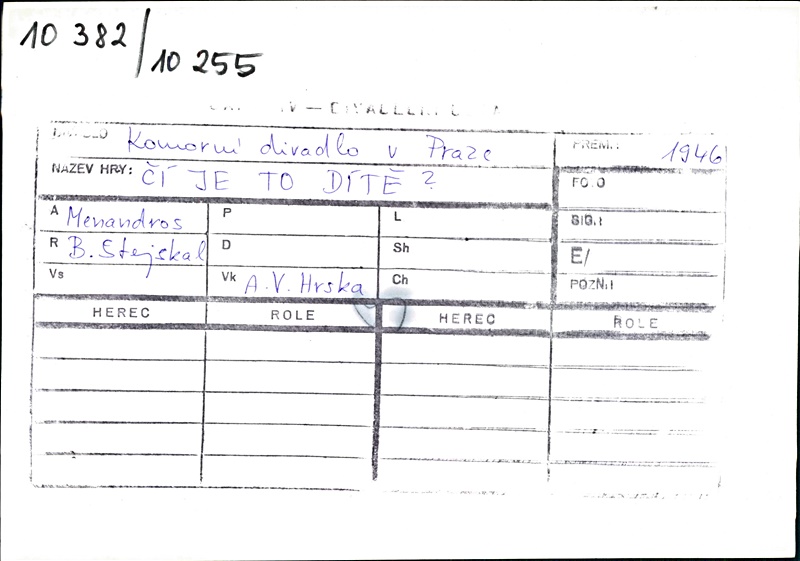 10 382/
10 255
Komorní divadlo v Praze
PREM.: 1946
NÁZEV HRY: ČÍ JE TO DÍTĚ?
FOTO
A Menandros P L
SIG.:
R B. Stejskal D Sh
E/
Vs Vk A.V. Hrska Ch
POZN.:
HEREC ROLE HEREC ROLE